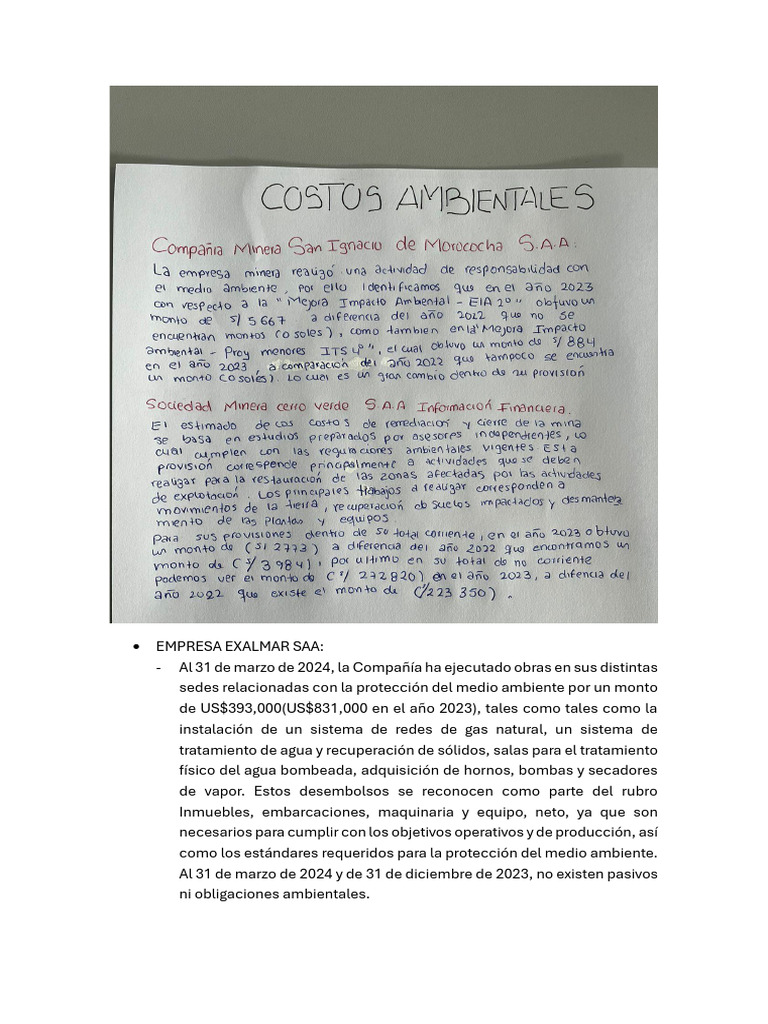 COSTOS AMBIENTALES
Compañia Minera San Ignacio de Morococha S.A.A:
La empresa minera realizó una actividad de responsabilidad con
el medio ambiente, por ello identificamos que en el año 2023
con respecto a la "Mejora Impacto Ambiental - EIA 2º" obtuvo un
monto de S/ 5667 a diferencia del año 2022 que no se
encuentran montos (0 soles), como tambien en la "Mejora Impacto
ambiental - Proy menores ITS 4º", el cual obtuvo un monto de S/ 884
en el año 2023, a comparación del año 2022 que tampoco se encuentra
un monto (0 soles). Lo cual es un gran cambio dentro de su provisión
Sociedad Minera cerro verde S.A.A Información Financiera.
El estimado de los costos de remediación y cierre de la mina
se basa en estudios preparados por asesores independientes, lo
cual cumplen con las regulaciones ambientales vigentes Esta
provisión corresponde principalmente a actividades que se deben
realizar para la restauración de las zonas afectadas por las actividades
de explotación. Los principales trabajos a realizar corresponden a
movimientos de la tierra, recuperación de suelos impactados y desmantela
miento de las plantas y equipos.
Para sus provisiones dentro de su total corriente, en el año 2023 obtuvo
un monto de (S/ 2773) a diferencia del año 2022 que encontramos un
monto de (S/ 3984), por ultimo en su total de no corriente
podemos ver el monto de (S/ 272820) en el año 2023, a difencia del
año 2022 que existe el monto de (S/ 223 350).
• EMPRESA EXALMAR SAA:
- Al 31 de marzo de 2024, la Compañía ha ejecutado obras en sus distintas
sedes relacionadas con la protección del medio ambiente por un monto
de US$393,000(US$831,000 en el año 2023), tales como tales como la
instalación de un sistema de redes de gas natural, un sistema de
tratamiento de agua y recuperación de sólidos, salas para el tratamiento
físico del agua bombeada, adquisición de hornos, bombas y secadores
de vapor. Estos desembolsos se reconocen como parte del rubro
Inmuebles, embarcaciones, maquinaria y equipo, neto, ya que son
necesarios para cumplir con los objetivos operativos y de producción, así
como los estándares requeridos para la protección del medio ambiente.
Al 31 de marzo de 2024 y de 31 de diciembre de 2023, no existen pasivos
ni obligaciones ambientales.